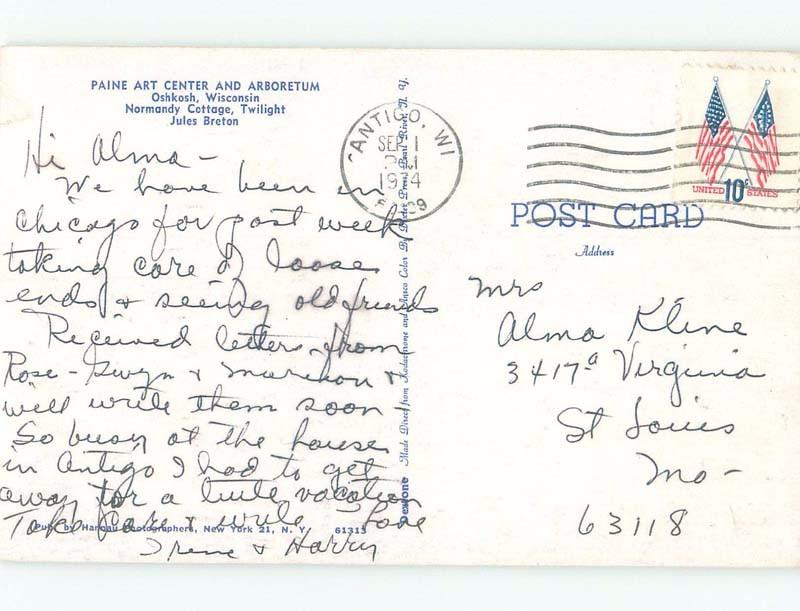 PAINE ART CENTER AND ARBORETUM
Oshkosh, Wisconsin
Normandy Cottage, Twilight
Jules Breton
Hi Alma -
We have been in
Chicago for past week
taking care of loose
ends & seeing old friends
Received letters from
Rose - Gwyn & &
will write them soon
So busy at the house
in Antigo I had to get
away for a little vacation
Take care & write Love
Irene & Harry
Pub. by Hannau Photographers, New York 21, N. Y. 61313
Dextone Made Direct from Kodachrome and Ansco Color By Dexter Press Pearl River, N. Y.
ANTIGO, WI
SEP 1
PM
1974
UNITED 10c STATES
POST CARD
Address
Mrs
Alma Kline
3417a Virginia
St Louis
Mo -
63118